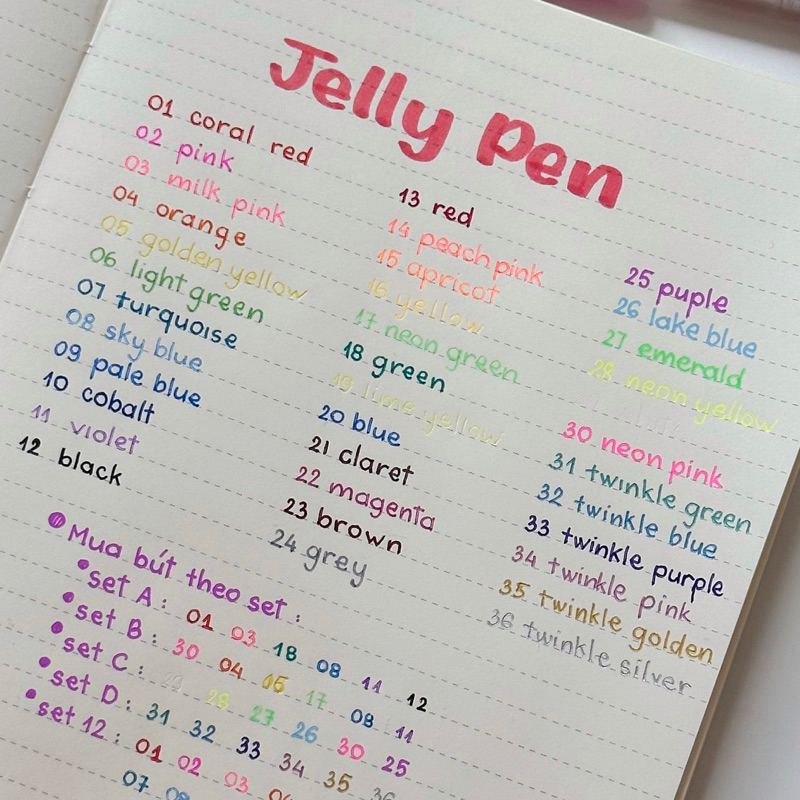 Jelly Pen
01 coral red
02 pink
03 milk pink
04 orange
05 golden yellow
06 light green
07 turquoise
08 sky blue
09 pale blue
10 cobalt
11 violet
12 black
13 red
14 peach pink
15 apricot
16 yellow
17 neon green
18 green
19 lime yellow
20 blue
21 claret
22 magenta
23 brown
24 grey
25 puple
26 lake blue
27 emerald
28 neon yellow
30 neon pink
31 twinkle green
32 twinkle blue
33 twinkle purple
34 twinkle pink
35 twinkle golden
36 twinkle silver
Mua bút theo set :
set A : 01 03 18 08 11 12
set B : 30 04 05 17 08 11
set C : 29 28 27 26 30 25
set D : 31 32 33 34 35 36
set 12 : 01 02 03 04
07 08